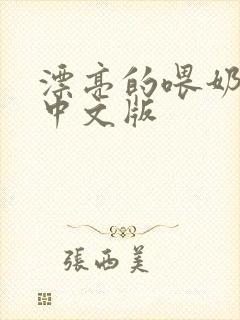 漂亮的喂奶
中文版
張西美